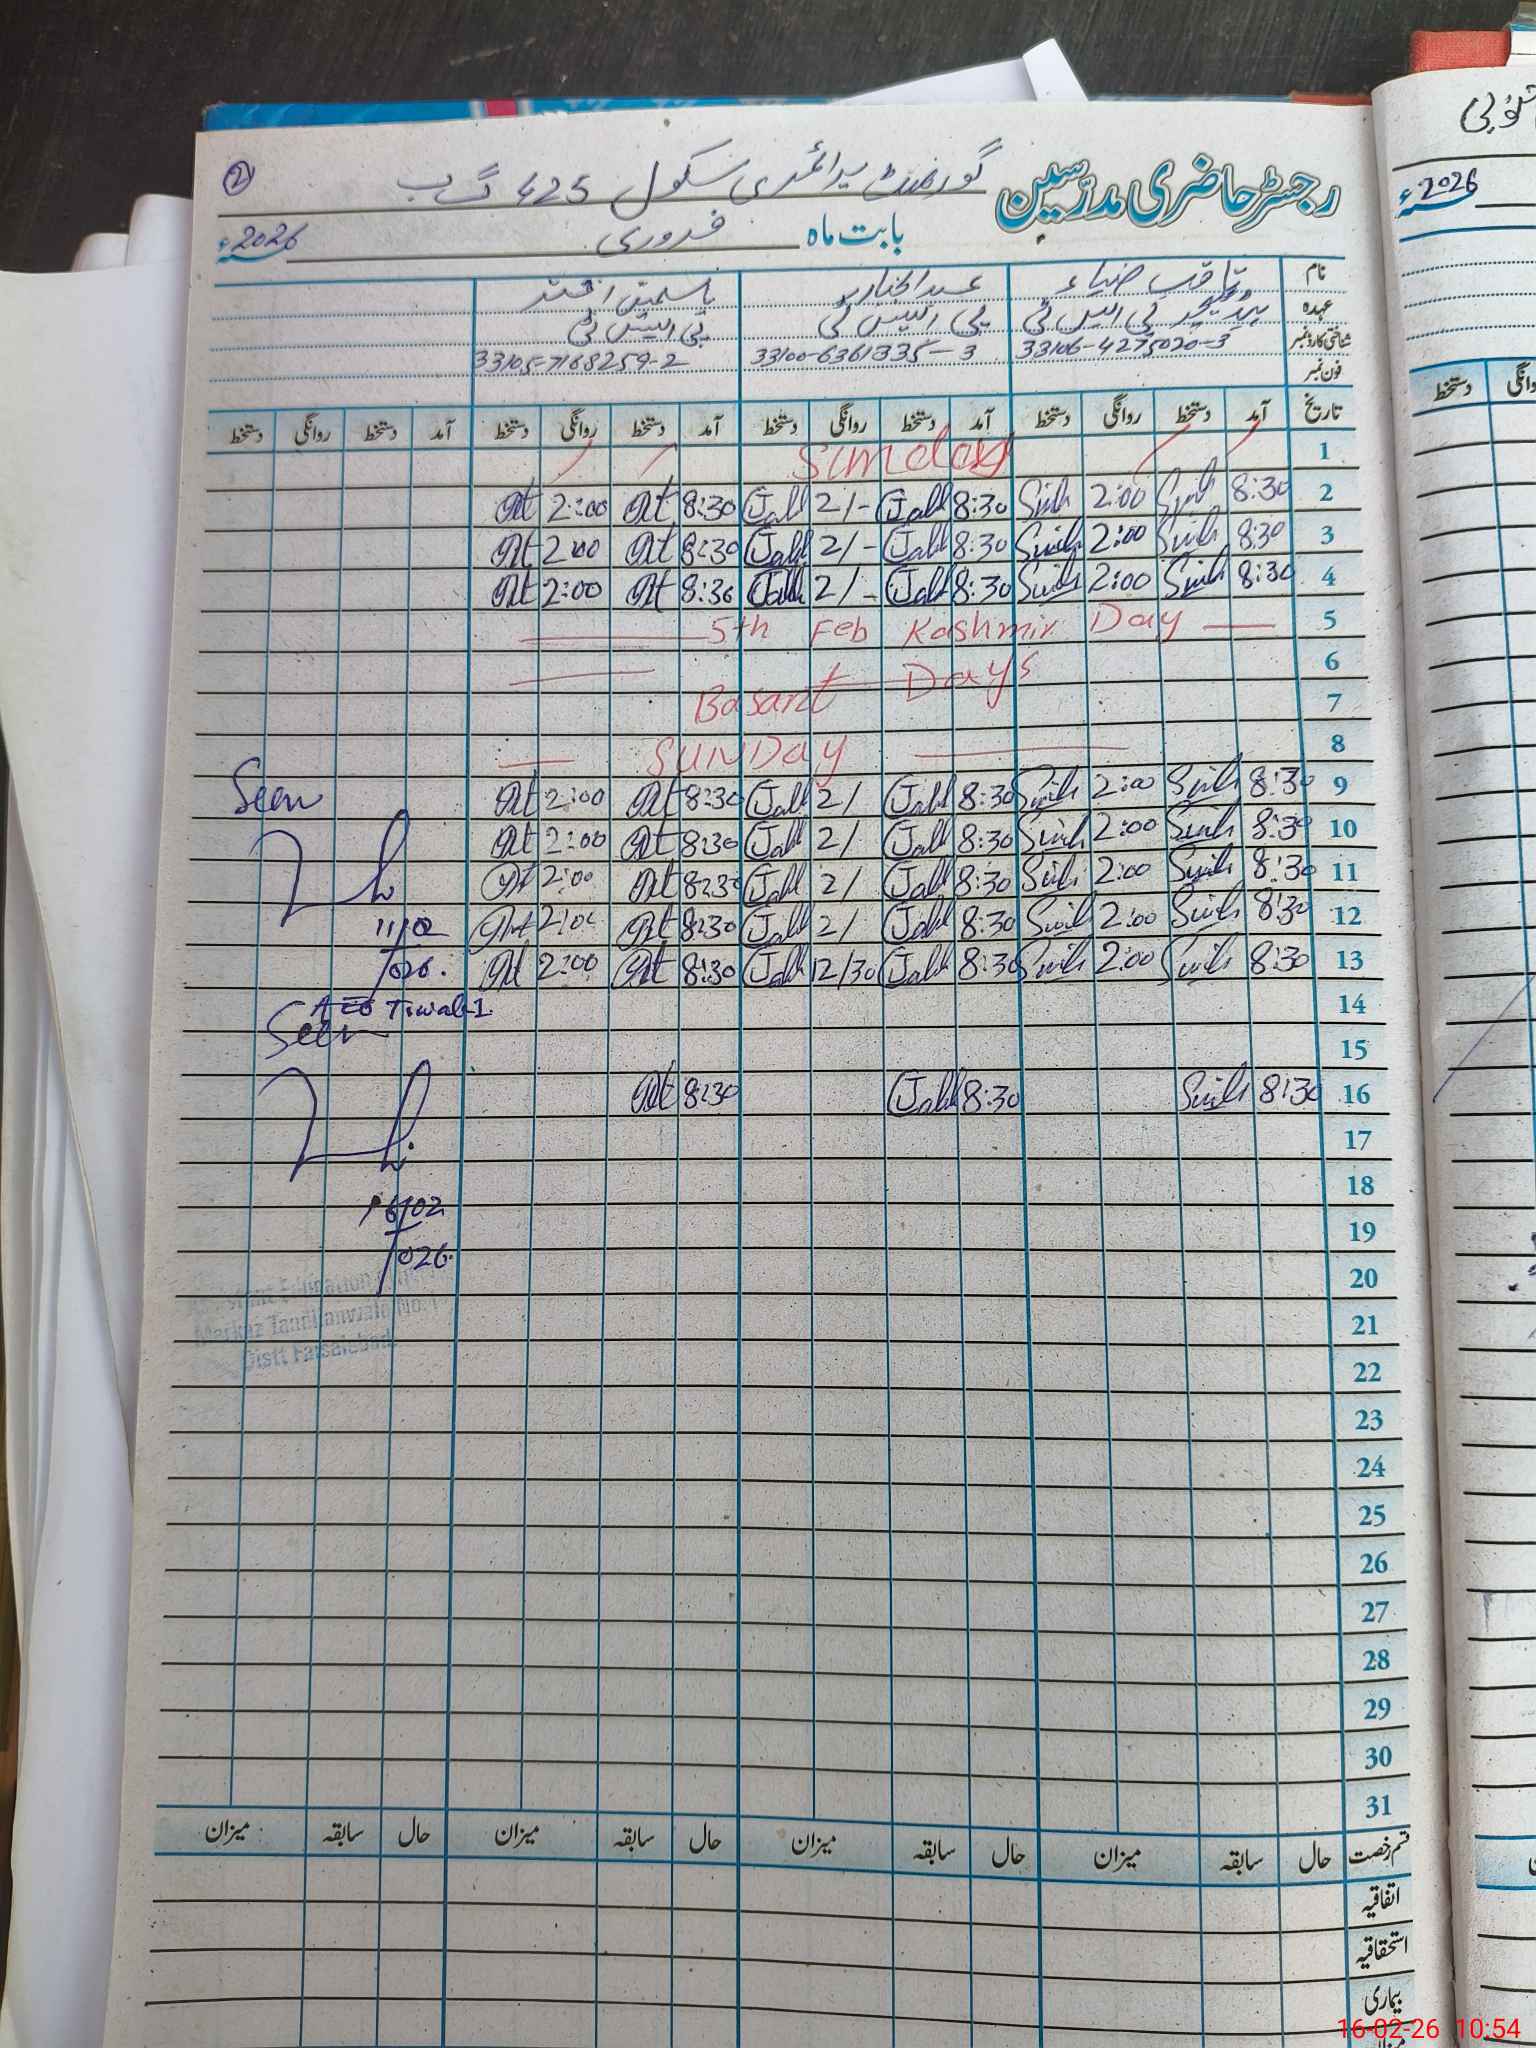 ②
رجسٹر حاضری مدرسین گورنمنٹ پرائمری سکول 425 گ ب
بابت ماہ فروری 2026ء
نام ثاقب ضیاء یاسمین اختر
عہدہ ہیڈ ٹیچر پی ایس ٹی پی ایس ٹی پی ایس ٹی
شناختی کارڈ نمبر 33106-4275020-3 33100-6361335-3 33105-7168259-2
فون نمبر
تاریخ آمد دستخط روانگی دستخط آمد دستخط روانگی دستخط آمد دستخط روانگی دستخط آمد دستخط روانگی دستخط
1 Sunday
2 8:30 2:00 8:30 2/- 8:30 2:00
3 8:30 2:00 8:30 2/- 8:30 2:00
4 8:30 2:00 8:30 2/- 8:30 2:00
5 5th Feb Kashmir Day
6
7 Basant Days
8 SUNDay
9 8:30 2:00 8:30 2/ 8:30 2:00
Seen
10 8:30 2:00 8:30 2/ 8:30 2:00
11 8:30 2:00 8:30 2/ 8:30 2:00
12 8:30 2:00 8:30 2/ 8:30 2:00
11/02
13 8:30 2:00 8:30 12/30 8:30 2:00
/026.
14
AEO Tiwala-1
Seen
15
16 8:30 8:30 8:30
17
18
16/02
19
/026.
20
Assistant Education
Markaz Tandlianwala No. 1
Distt Faisalabad
21
22
23
24
25
26
27
28
29
30
31
قسم رخصت حال سابقہ میزان حال سابقہ میزان حال سابقہ میزان حال سابقہ میزان
اتفاقیہ
استحقاقیہ
بیماری
میزان
2026ء
دستخط روانگی
16-02-26 10:54